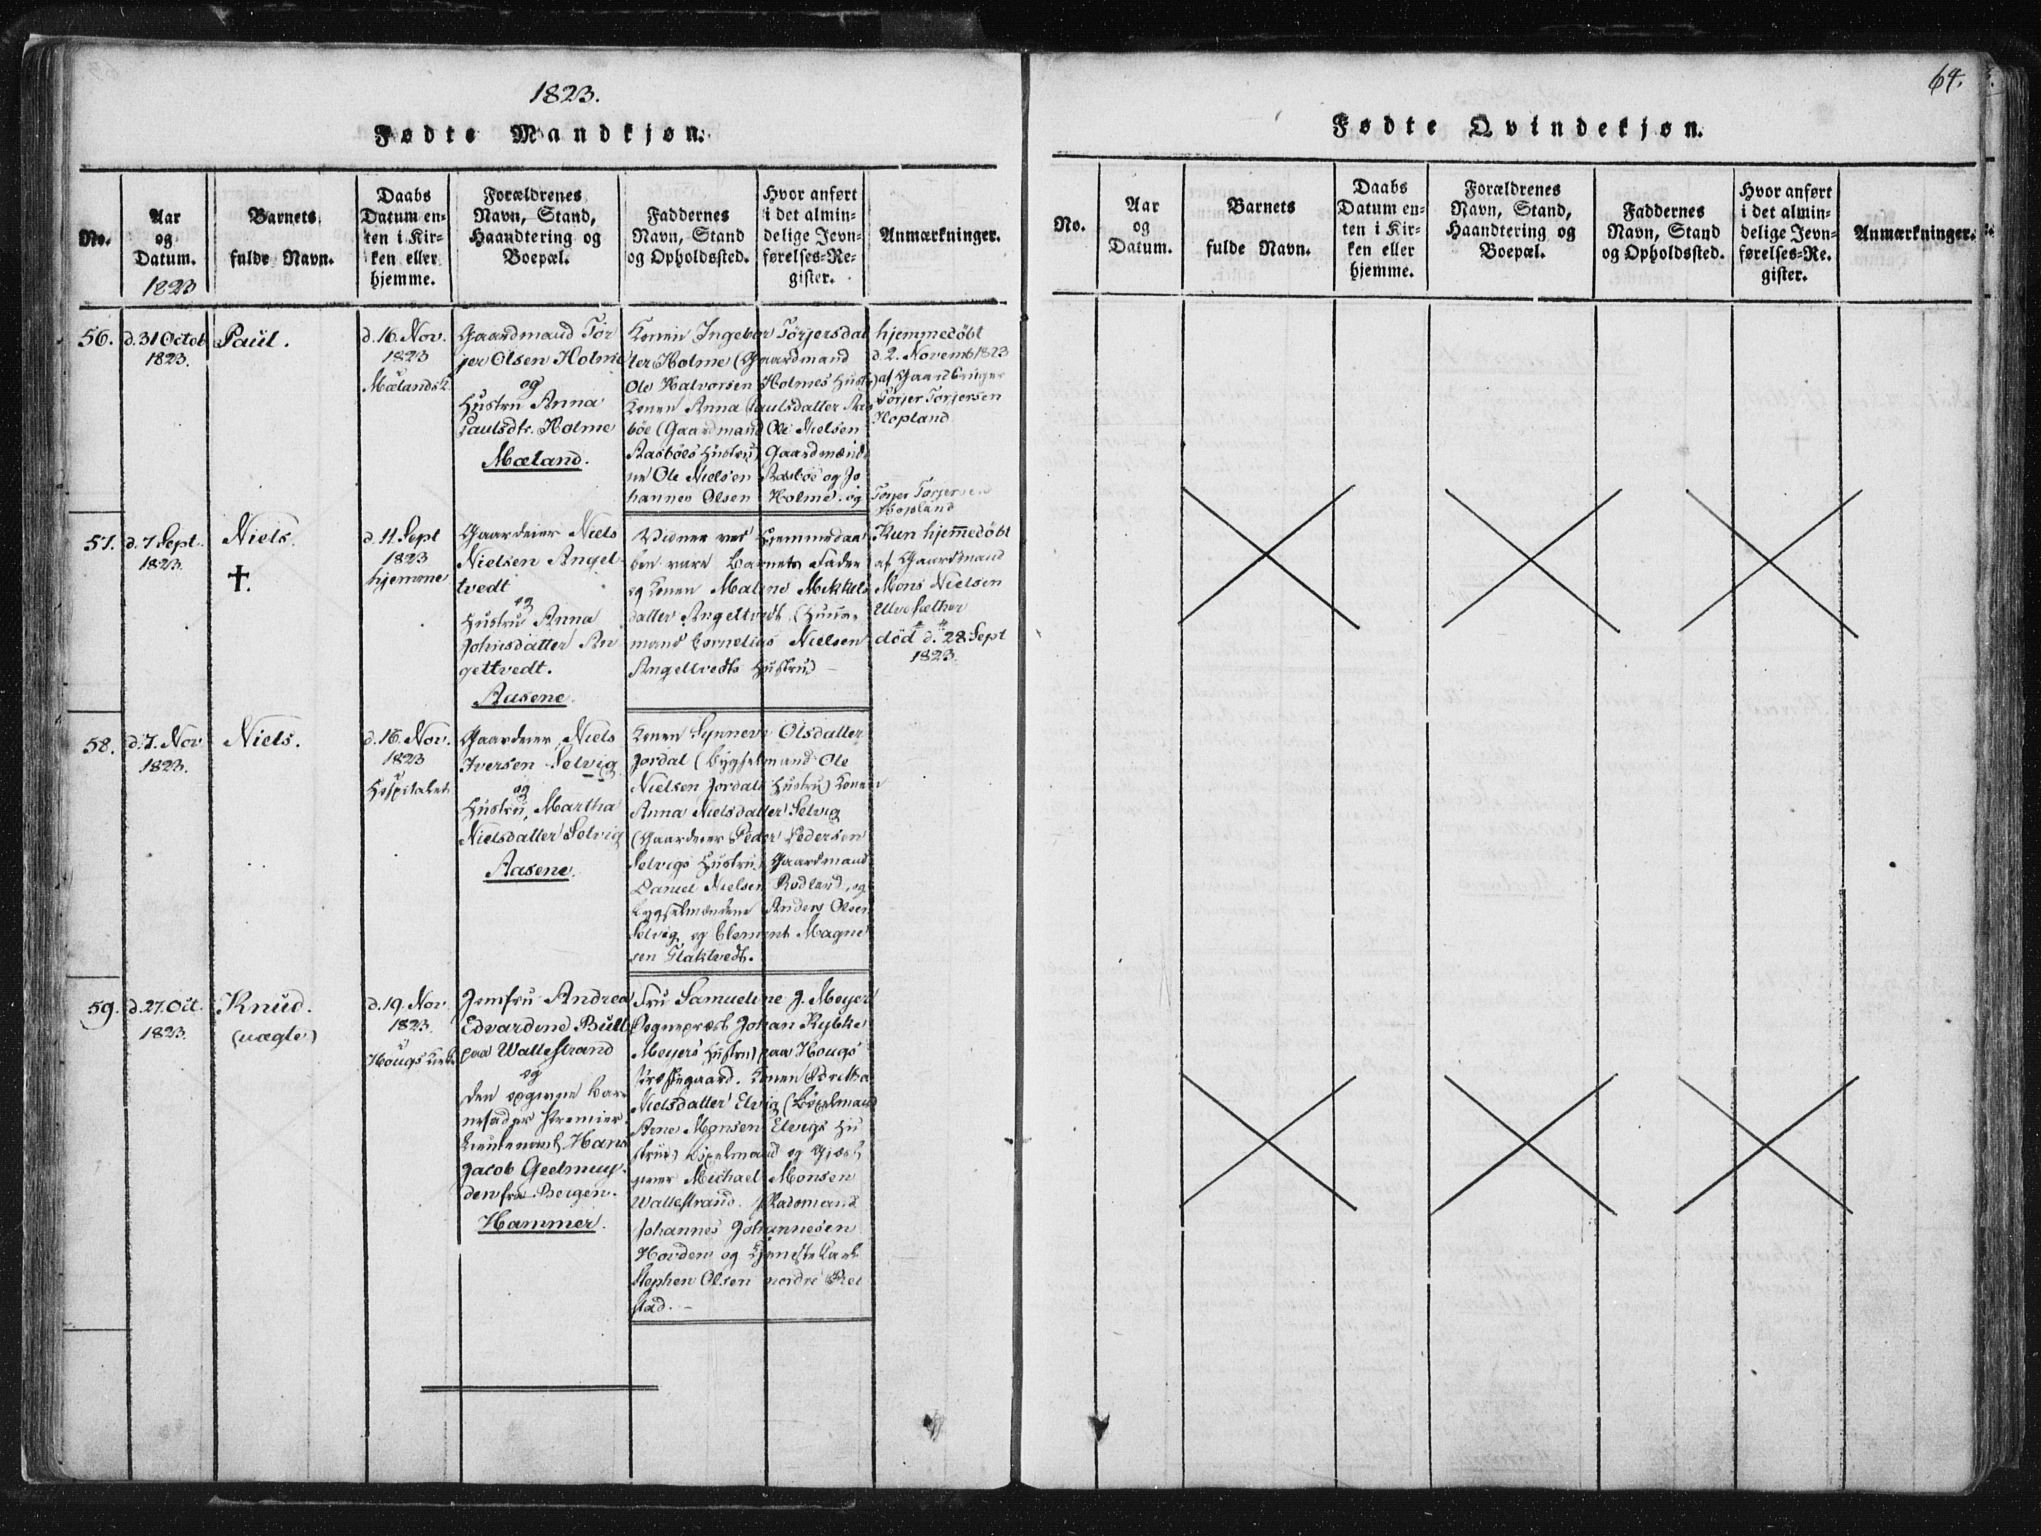 1823.
Fødte Mandkjøn.
No.
Aar
og
Datum.
1823
Barnets
fulde Navn.
Daabs
Datum en-
ten i Kir-
ken eller
hjemme.
Forældrenes
Navn, Stand,
Haandtering og
Boepæl.
Faddernes
Navn, Stand
og Opholdssted.
Hvor anført
i det almin-
delige Jevn-
førelses-Re-
gister.
Anmærkninger.
56.
d. 31 Octob
1823.
Paul.
d. 16. Nov.
1823
Mælands K
Gaardmand Tør
jer Olsen Holme
og
Hustru Anna
Paulsdtr. Holme
Mæland.
Konen Ingebor Tørjersdat
ter Holme (Gaardmand
Ole Halvorsen Holmes Hustr)
Konen Anna Paulsdatter Aas
böe (Gaardmand Ole Nielsen
Aasböes Hustru) Gaardmænde
ne Ole Nielsen Aasböe og Jo
hannes Olsen Holme. og
Törjer Törjersen
Hopland
hjemmedöbt
d. 2. Novemb 1823
af Gaardbruger
Törjer Törjersen
Hopland
57.
d. 7 Sept.
1823.
Niels.
†.
d. 11. Sept
1823
hjemme
Gaardeier Niels
Nielsen Angel
tvedt
og
Hustru Anna
Johnsdatter An
geltvedt.
Aasene.
Vidner ved Hjemmedaa
ben vare Barnets Fader
og Konen Malene Mikkels
datter Angeltvedt (Huus-
mand Cornelius Nielsen
Angeltvedts Hustru) –
Kun hjemmedöbt
af Gaardmand
Mons Nielsen
død d. 28 Sept
1823.
58.
d. 7. Nov
1823.
Niels.
d. 16. Nov.
1823
Hospitalet
Gaardeier Niels
Iversen Selvig
og
Hustru, Martha
Nielsdatter Selvig
Aasene.
Konen Synneve Olsdatter
Jordal (Bygselmand Ole
Nielsen Jordals Hustru) Konen
Anna Nielsdatter Selvig
(Gaardeier Peder Pedersen
Selvigs Hustru). Gaardmand
Daniel Nielsen Rødland, og
Bygselmændene Anders Olsen
Selvig og Clement Magne
sen Flaktvedt.
59.
d. 27. Oct.
1823.
Knud.
(uægte)
d. 19. Nov.
1823.
Hougs Kirke
Jomfru Andrea
Edvardine Bull
paa Wallestrand
og
den opgivne Bar
nefader Premier
Lieutenant Hans
Jacob Geelmuy-
den fra Bergen.
Hammer.
Fru Samueline J. Meyer
Sognepræst Johan Rybke
Meyers Hustru) paa Hougs
Præstegaard. Konen Brita
Nielsdatter Elvig (Böxelmand
Arne Monsen Elvigs Hu
strue) Böxelmand og Gjæst
giver Michael Monsen
Wallestrand. Pladsmand
Johannes Johannesen
Hovden og Tjenestekarl
Stephen Olsen nordre
stad. –
64.
Fødte Qvindekjøn.
No.
Aar
og
Datum.
Barnets
fulde Navn.
Daabs
Datum en-
ten i Kir-
ken eller
hjemme.
Forældrenes
Navn, Stand,
Haandtering og
Boepæl.
Faddernes
Navn, Stand
og Opholdssted.
Hvor anført
i det almin-
delige Jevn-
førelses-Re-
gister.
Anmærkninger.